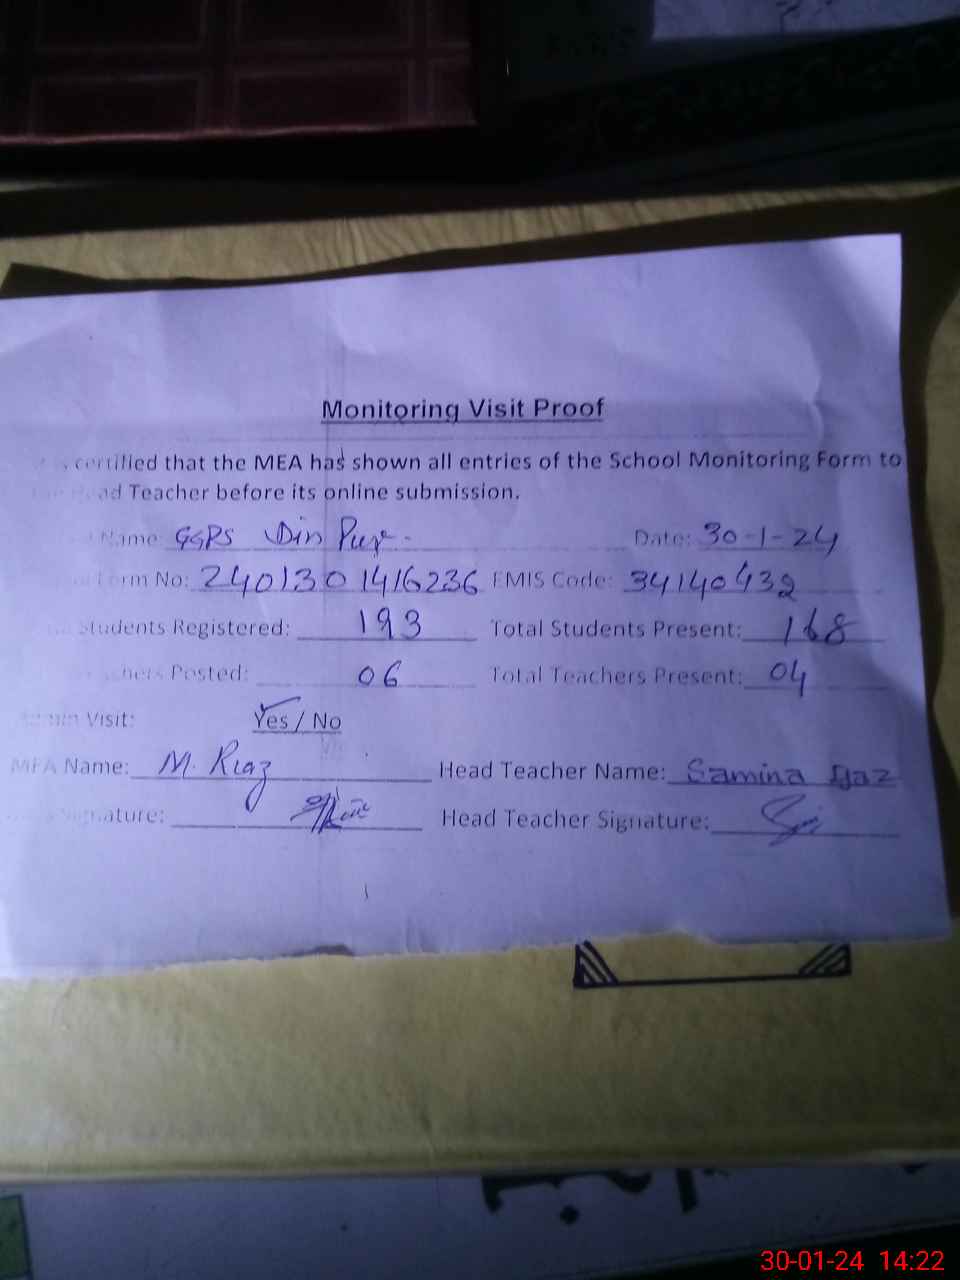 Monitoring Visit Proof
certified that the MEA has shown all entries of the School Monitoring Form to
Head Teacher before its online submission.
Name: GGPS Din Pur. Date: 30-1-24
Form No: 2401301416236 EMIS Code: 34140432
Students Registered: 193 Total Students Present: 168
Teachers Posted: 06 Total Teachers Present: 04
Admin Visit: Yes / No
MEA Name: M. Riaz Head Teacher Name: Samina Ijaz
Signature: Head Teacher Signature:
30-01-24 14:22